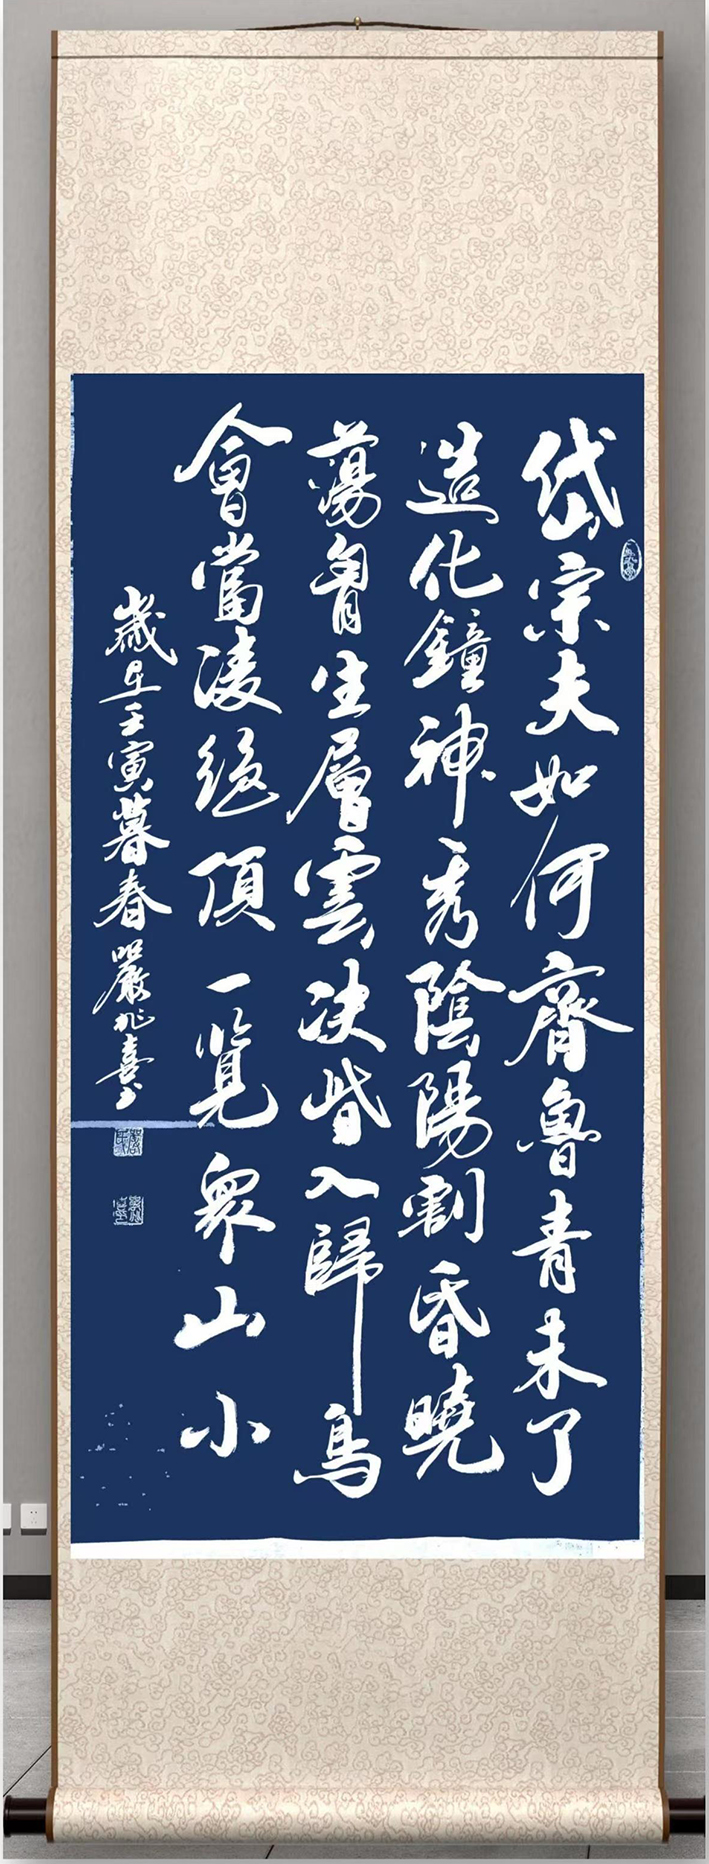 岱宗夫如何齊魯青未了
造化鐘神秀陰陽割昏曉
蕩胷生層雲決眥入歸鳥
會當凌絕頂一覽衆山小
歲在壬寅暮春嚴